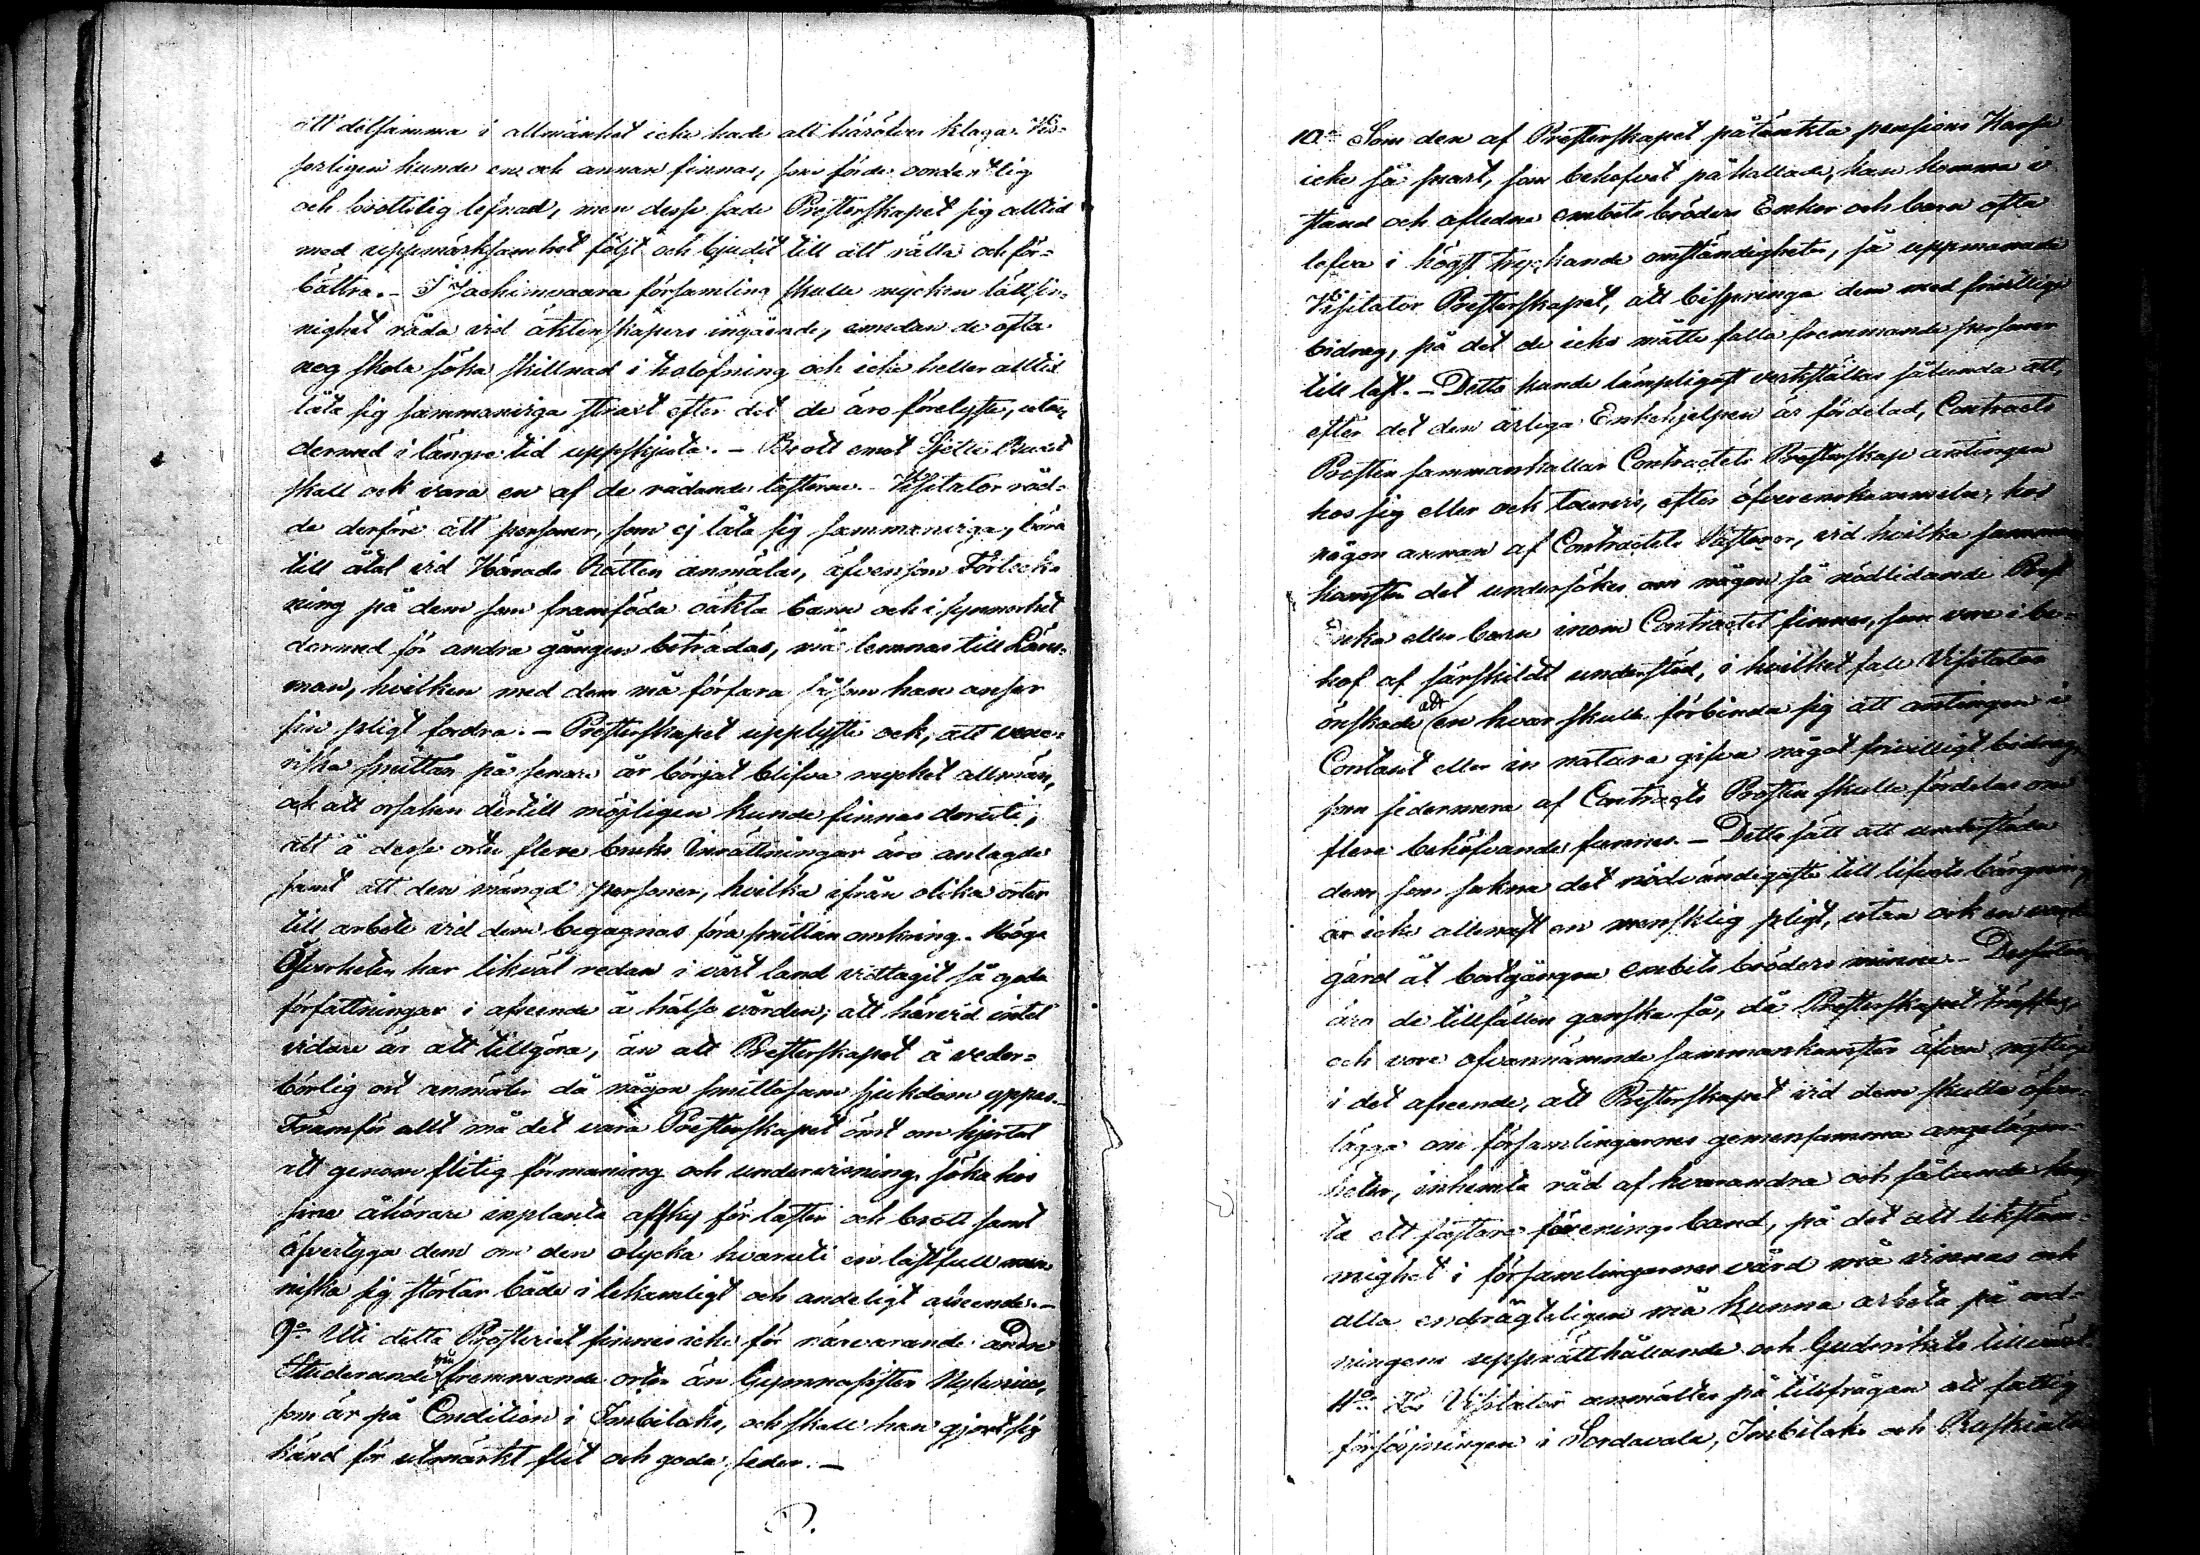 att detsamma i allmänhet icke hade att häröfver klaga. Vis-
serligen kunde en och annan finnas, som förde oordentlig
och brottslig lefnad, men desse sade Presterskapet sig alltid
med uppmärksamhet följt och bjudit till att rätta och för-
bättra. – I Jaakimvaara församling skulle mycken lättsin-
nighet råda vid äktenskapers ingående, emedan de ofta
nog skola söka skillnad i trolofning och icke heller alltid
låta sig sammanviga straxt efter det de äro förelyste, utan
dermed i längre tid uppskjuta. – Brott emot Sjette Budet
skall ock vara en af de rådande lasterne. Visitator råd-
de derföre att personer, som ej låta sig sammanviga, böra
till åtal vid Härads Rätten anmälas, äfvensom Förteck-
ning på dem som framföda oäkta barn och i synnerhet
dermed för andra gången beträdas, må lemnas till Läns-
man, hvilken med dem må förfara såsom han anser
sin pligt fordra. – Presterskapet upplyste ock, att vene-
riska smittan på senare år börjat blifva mycket allmän,
och att orsaken dertill möjligen kunde finnas deruti,
att å desse orter flere bruks Inrättningar äro anlagde
samt att den mängd personer, hvilka ifrån olika orter
till arbete vid dem begagnas föra smittan omkring. Höga
Öfverheten har likväl redan i vårt land vidtagit så goda
författningar i afseende å hälso vården, att härvid intet
vidare är att tillgöra, än att Presterskapet å veder-
börlig ort anmäler då någon smittosam sjukdom yppas. –
Framför allt må det vara Presterskapet ömt om hjertat
att genom flitig förmaning och undervisning söka hos
sina åhörare inplanta afsky för laster och brott samt
öfvertyga dem om den olycka hvaruti en lastfull men-
niska sig störtar både i lekamligt och andeligt afseende. –
9:o Uti detta Prosteriet finnes icke för närvarande andre
Studerande från fremmande orter än Gymnasisten Nylenius,
som är på Condition i Imbilaks, och skall han gjort sig
känd för utmärkt flit och goda seder. –
10:o Som den af Presterskapet påtänkta pensions Kassa
icke så snart, som behofvet påkallade, kan komma i
stånd och afledne embets bröders Enkor och barn ofta
lefva i högst tryckande omständigheter, så uppmanade
Visitator Presterskapet, att bispringa dem med frivilliga
bidrag, på det de icke måtte falla fremmande personer
till last. – Detta kunde lämpligast verkställas sålunda att,
efter det den årliga Enkehjelpen är fördelad, Contracts
Prosten sammankallar Contractets Presterskap antingen
hos sig eller ock tourvis, efter öfverenskommelse, hos
någon annan af Contractets Pastorer, vid hvilka samman-
komster det undersökes om någon så nödlidande Prest
Enka eller barn inom Contractet finnes, som vore i be-
hof af särskildt understöd, i hvilket fall Visitator
önskade att en hvar skulle förbinda sig att antingen i
Contant eller in natura gifva något frivilligt bidrag,
som sedermera af Contracts Prosten skulle fördelas om
flere behöfvande funnes. – Detta sätt att understöda
dem som sakna det nödvändigaste till lifvets bärgning
är icke allenast en mensklig pligt, utan ock en
gärd åt bortgångne embets bröders minne. – Dessutom
äro de tillfällen ganska få, då Presterskapet träffas,
och vore ofvannämnde sammankomster äfven nyttige
i det afseende, att Presterskapet vid dem skulle öfver-
lägga om församlingarnes gemensamma angelägen-
heter, inhemta råd af hvarandra och sålunda
ta ett fastare förenings band, på det att likstäm-
mighet i församlingarnes vård må vinnas och
alla endrägteligen må kunna arbeta på ord-
ningens upprätthållande och Gudsrikets tillväxt.
11:o Hos Visitator anmältes på tillfrågan att fattig
försörjningen i Sordavala, Imbilaks och Ruskiala